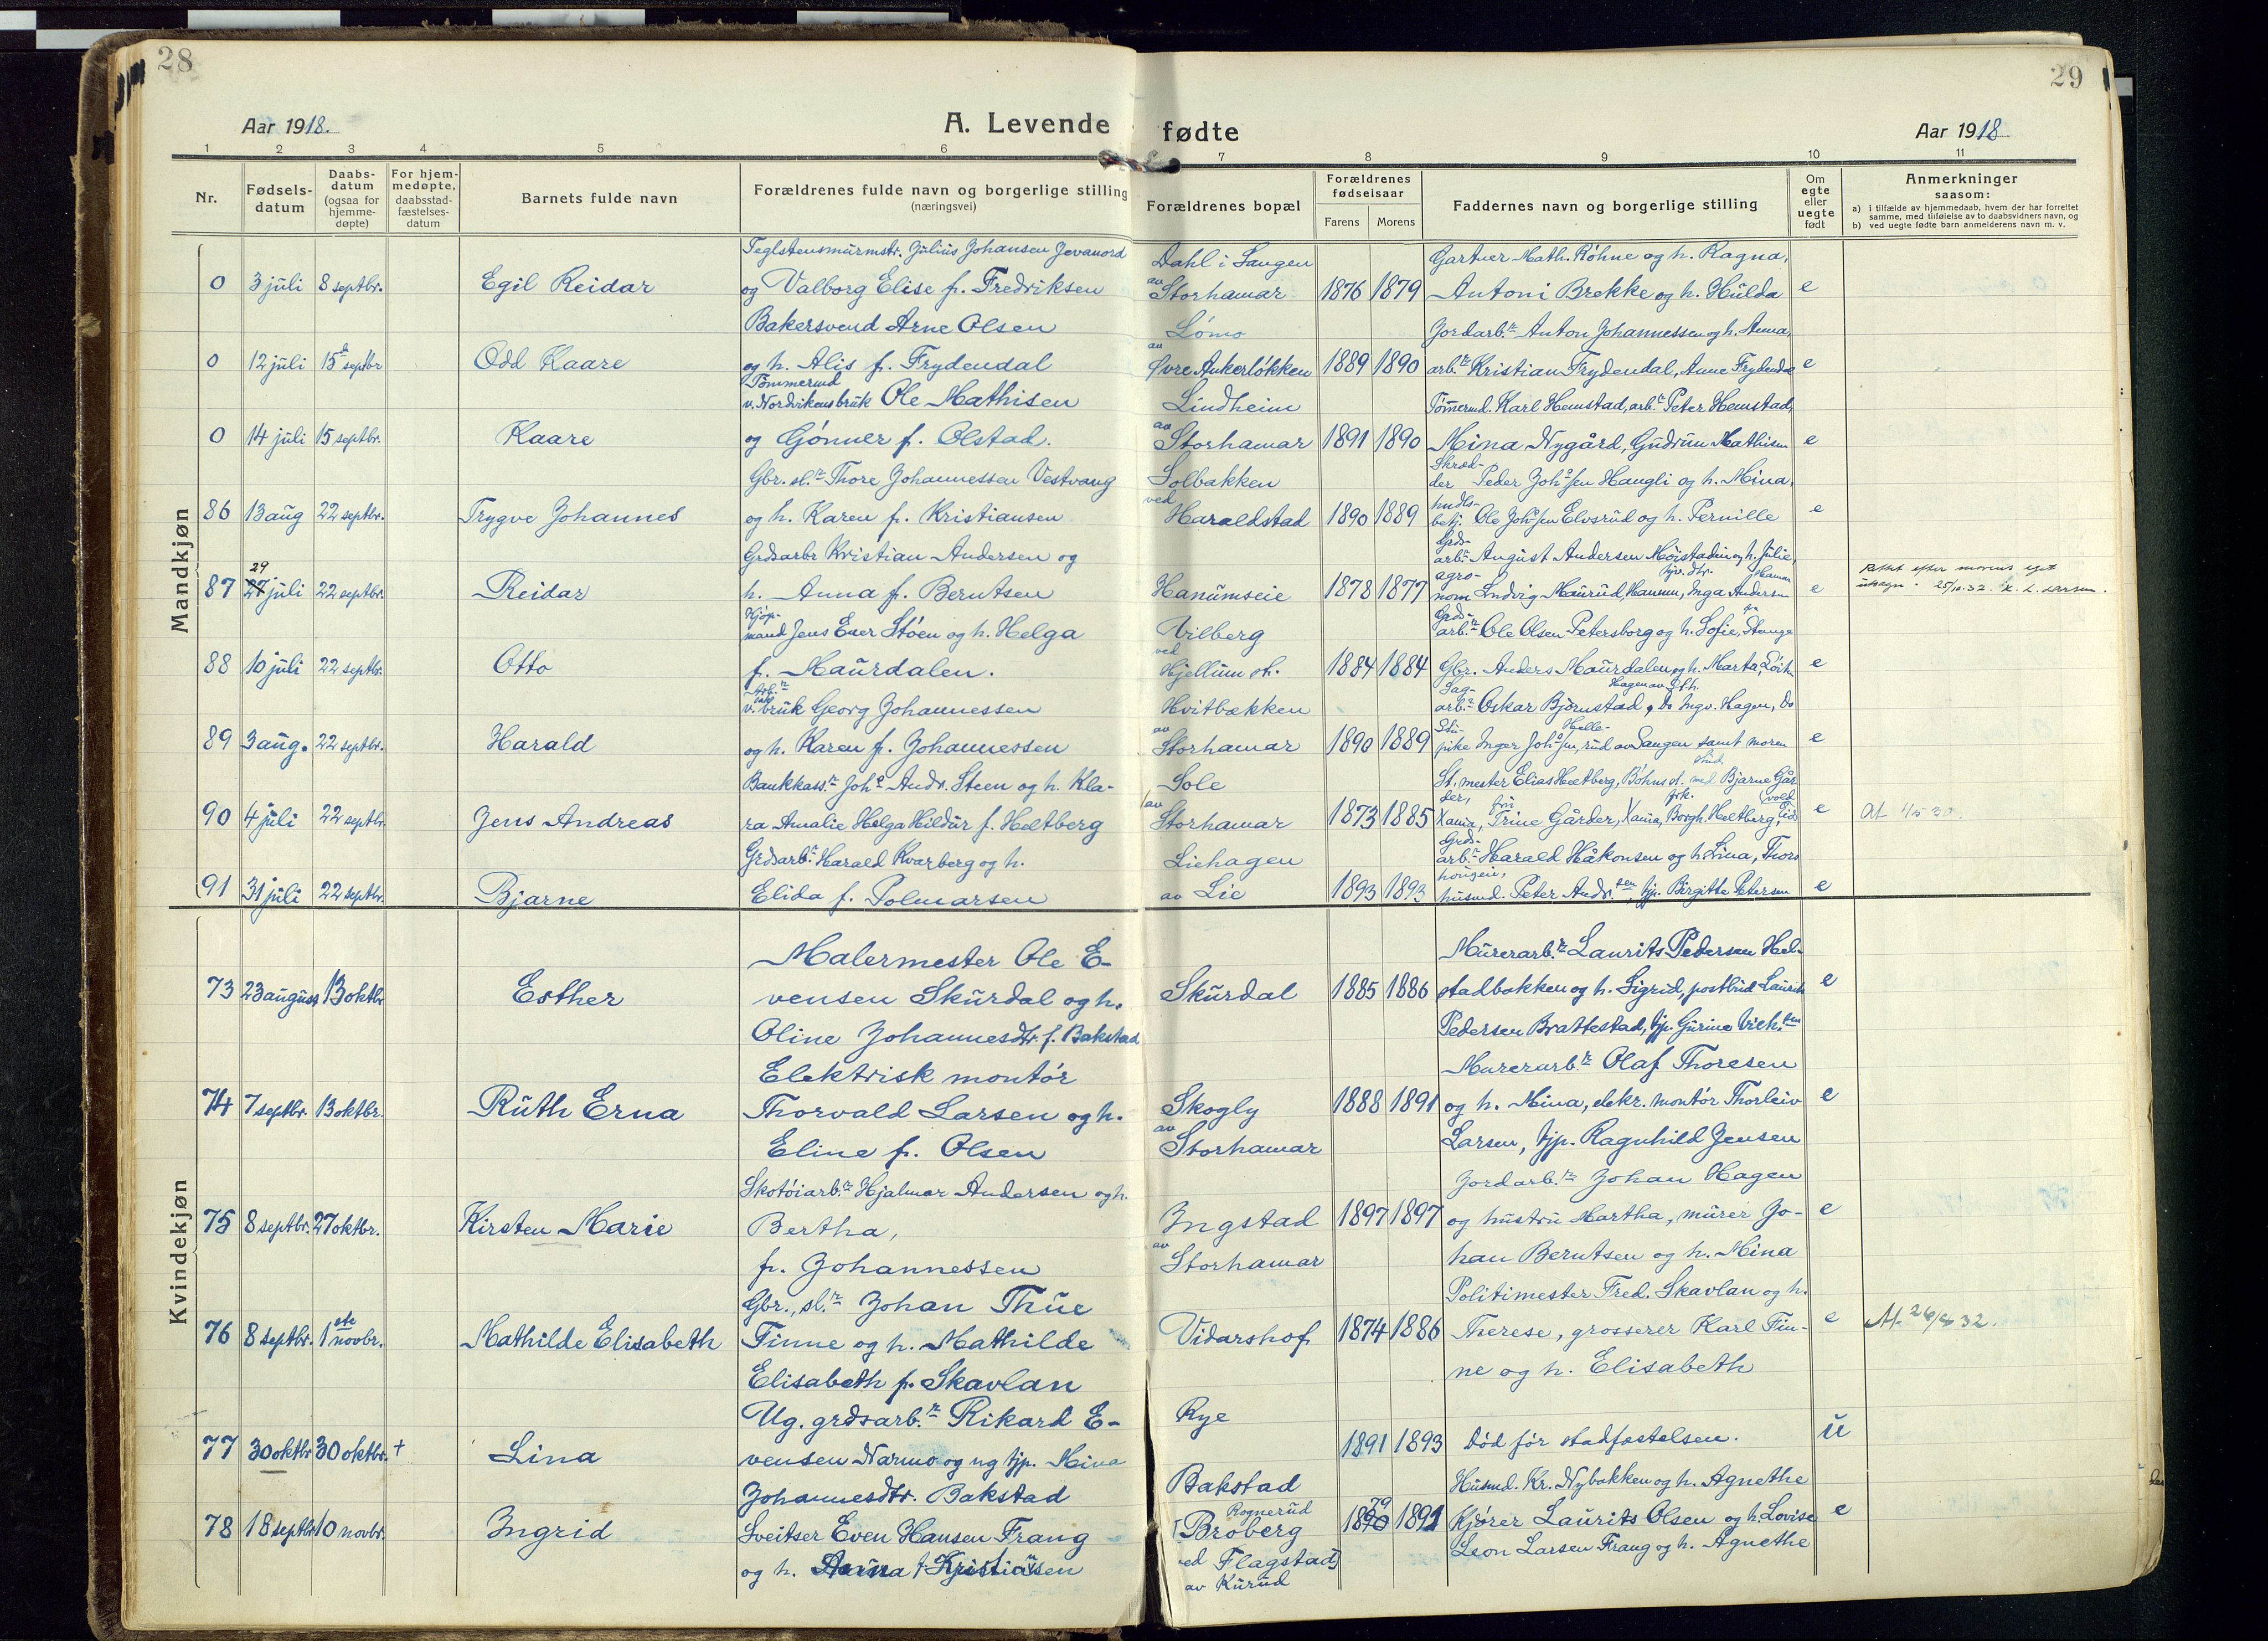 28
29
Aar 1918.
A. Levende fødte
Aar 1918
1 2 3 4 5 6 7 8 9 10 11
Nr.
Fødsels-
datum
Daabs-
datum
(ogsaa for
hjemme-
døpte)
For hjem-
medøpte,
daabsstad-
fæstelses-
datum
Barnets fulde navn
Forældrenes fulde navn og borgerlige stilling
(næringsvei)
Forældrenes bopæl
Forældrenes
fødselsaar
Farens Morens
Faddernes navn og borgerlige stilling
Om
egte
eller
uegte
født
Anmerkninger
saasom:
a) i tilfælde av hjemmedaab, hvem der har forrettet
samme, med tilføielse av to daabsvidners navn, og
b) ved uegte fødte barn anmelderens navn m. v.
Mandkjøn
Teglstensmurmstr. Julius Johansen Jevanord Dahl i Sangen Gartner Math. Röhne og h. Ragna,
0 3 juli 8 septbr. Egil Reidar og Valborg Elise f. Fredriksen av Storhamar 1876 1879 Antoni Brekke og h. Hulda e
Bakersvend Arne Olsen Lömo Jordarb.r Anton Johannessen og h. Anna,
0 12 juli 15de septbr Odd Kaare og h. Alis f. Frydendal av Øvre Ankerløkken 1889 1890 arb.r Kristian Frydendal, Anne Frydendal e
Tømmermd
v. Nordvikens bruk Ole Mathisen Lindheim Tømmermd. Karl Hemstad, arb.r Peter Hemstad,
0 14 juli 15 septbr. Kaare og Gönner f. Olstad. av Storhamar 1891 1890 Mina Nygård, Gudrun Mathisen e
Gbr. sl.r Thore Johannessen Vestvang Solbakken Skræd-
der Peder Johsen Haugli og h. Mina,
86 13 aug 22 septbr. Trygve Johannes og h. Karen f. Kristiansen ved Haraldstad 1890 1889 hndls-
betj. Ole Johsen Elvsrud og h. Pernille e
Grdsarbr Kristian Andersen og Grds-
arb.r August Andersen Möistadin og h. Julie,
87 29 27 juli 22 septbr. Reidar h. Anna f. Berntsen Hanumseie 1878 1877 agro-
nom Ludvig Maurud, Hamm, Inga Andersen e Rettet efter morens eget
utsagn. 25/10.32. K. L. Larsen.
Kjøp-
mand Jens Ener Stöen og h. Helga Vilberg Grds-
arb.r Ole Olsen Petersborg og h. Sofie, Stange
88 10 juli 22 septbr. Otto f. Maurdalen. ved Hjellum st. 1884 1884 Gbr. Anders Maurdalen og h. Marta, Löit. e
Arb.r
v. bruk Georg Johannessen Hvitbækken Sag-
arb.r Oskar Bjørnstad, Do Ingv. Hagen, Do
89 3 aug. 22 septbr. Harald og h. Karen f. Johannessen av Storhamar 1890 1889 pike Inger Johsen, Helle-
rud av Sangen samt moren e
Bankkass.r Joh. Andr. Steen og h. Kla- Sole St. mester Elias Heltberg, Böhns st. stud. med Bjarne Går
90 4 juli 22 septbr. Jens Andreas ra Amalie Helga Hildur f. Heltberg av Storhamar 1873 1885 der, Vania, fru Trine Gårder, Vania, frk. Borgh. Heltberg, e At 4/5 30.
Grdsarb.r Harald Kvarberg og h. Liehagen Grds-
arb.r Harald Håkonsen og h. Lina, Thors
91 31 juli 22 septbr. Bjarne Elida f. Polmarsen av Lie 1893 1893 husmd. Peter Andr.sen, tjp. Birgitte Petersen e
Kvindekjøn
Malermester Ole E- Murerarb.r Laurits Pedersen Hel-
73 23 august 13 oktbr Esther vensen Skurdal og h. Skurdal 1885 1886 stadbakken og h. Sigrid, postbud Laurits e
Oline Johannesdtr. f. Bakstad Pedersen Brattestad, tjp. Gurine Vilh.sen
Elektrisk montör Murerarb.r Olaf Thoresen
74 7 septbr. 13 oktbr. Ruth Erna Thorvald Larsen og h. Skogly 1888 1891 og h. Mina, elekr. montör Thorleiv e
Eline f. Olsen av Storhamar Larsen, tjp. Ragnhild Jensen
Skotöiarb.r Hjalmar Andersen og h. Jordarb.r Johan Hagen
75 8 septbr. 27 oktbr. Kirsten Marie Bertha, Ingstad 1897 1897 og hustru Martha, murer Jo- e
f. Johannessen av Storhamar han Berntsen og h. Mina
Gbr., sl.r Johan Thue Politimester Fred. Skavlan og h.
76 8 septbr. 1ste novbr. Mathilde Elisabeth Finne og h. Mathilde Vidarshof 1874 1886 Therese, grosserer Karl Fin- e At. 26/8 32.
Elisabeth f. Skavlan ne og h. Elisabeth
Ug. grdsarb.r Rikard E- Rye
77 30 oktbr 30 oktbr. + Lina vensen Narmo og ug tjp. Mina 1891 1893 Död för stadfæstelsen. u
Johannesdtr. Bakstad Bakstad Husmd. Kr. Nybakken og h. Agnethe
78 18 septbr 10 novbr. Ingrid Sveitser Even Hansen Frang Rognerud Broberg 1890 79 1891 Kjörer Laurits Olsen og h. Lovise e
og h. Anna f. Kristiansen ved Flagstad Leon Larsen Frang og h. Agnethe
av Kurud